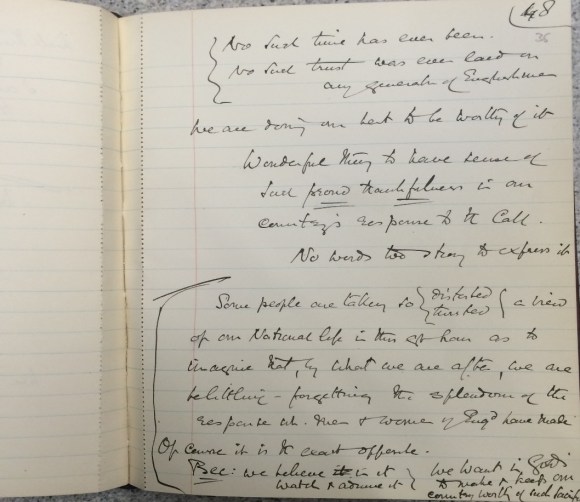 48
36
No such time has ever been.
No such trust was ever laid on
any generatn of Englishmen
We are doing our best to be worthy of it
Wonderful thing to have sense of
such proud thankfulness in our
country's response to the Call.
No words too strong to express it
Some people are taking so { distorted } a view
twisted
of our National life in this gt hour as to
imagine that, by what we are after, we are
belittling - forgetting the splendour of the
response wh. men & women of Engd have made
Of course it is the exact opposite.
Bec: we believe in it } We want in God's
watch & admire it } to make & keep our
country worthy of such